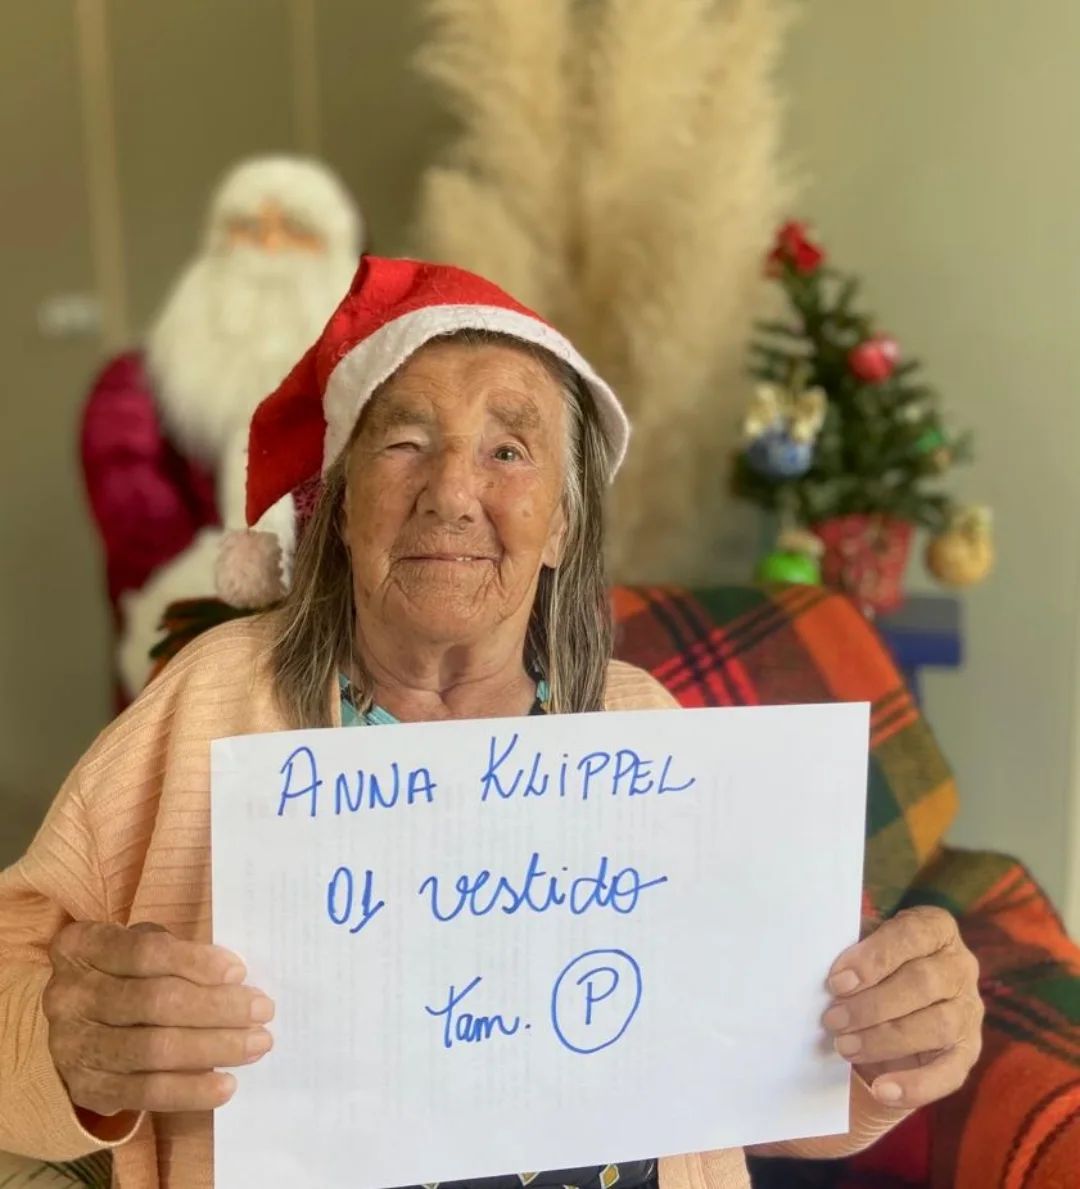 ANNA KLIPPEL
01 vestido
Tam. P